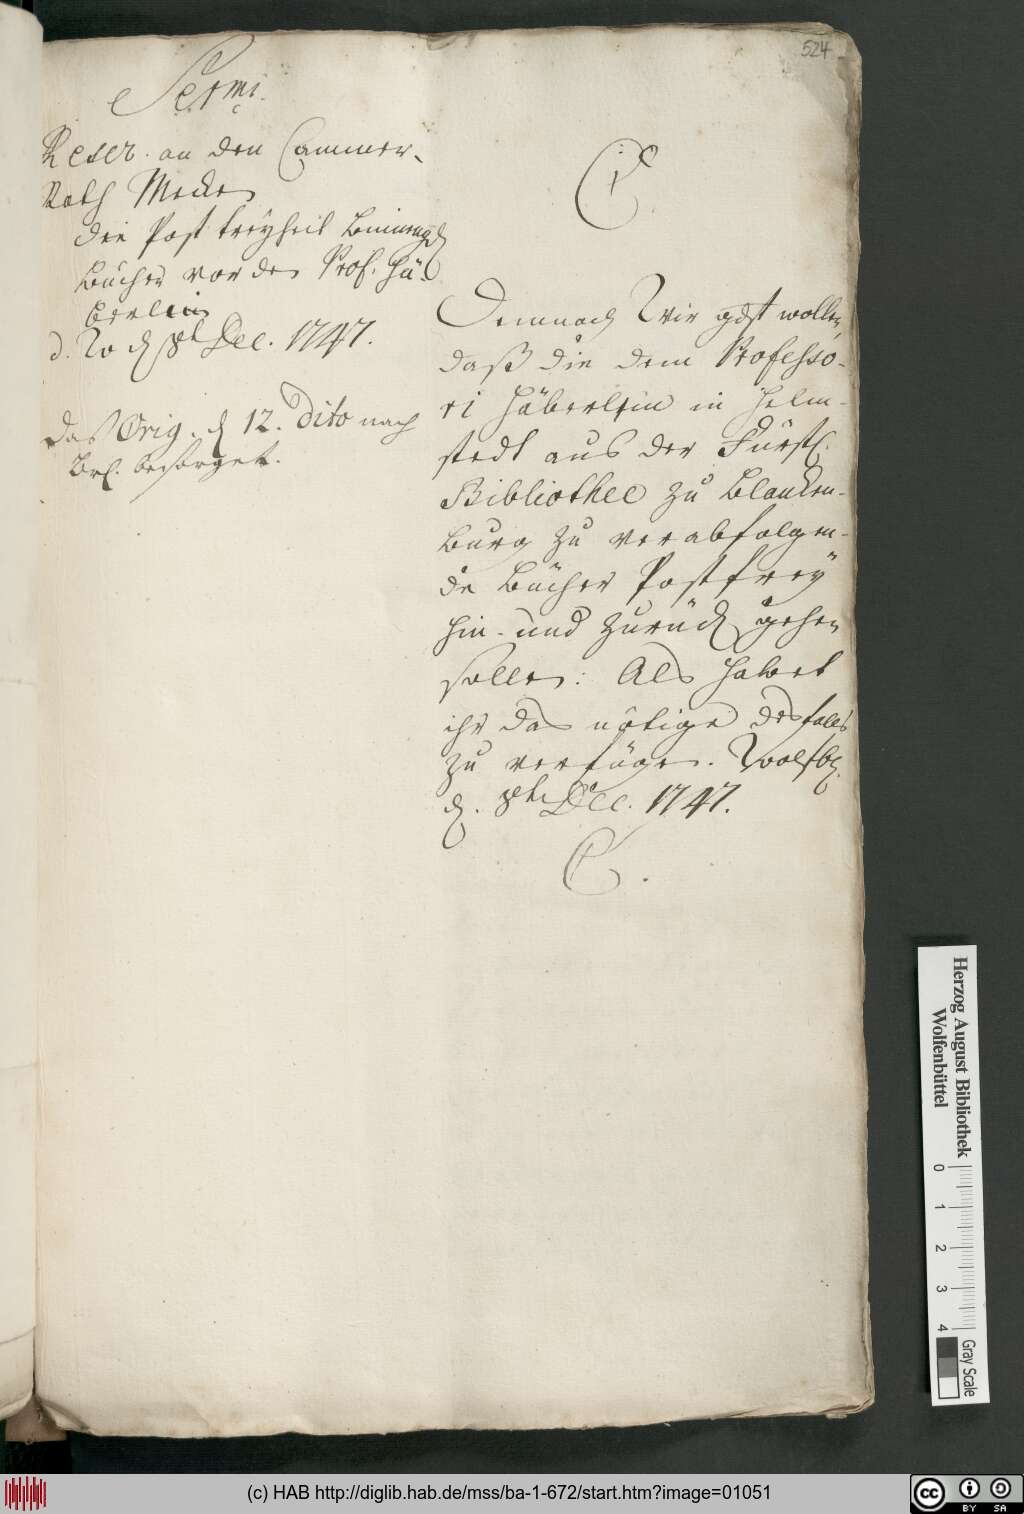 524
Sermi
Rescr. an den Cammer-
Rath Mecke
die Post freyheit
Bücher vor den Prof. Hä-
berlin
d. W. d 8t Dec. 1747.
Das Orig. d 12. dito nach
Br. besorget.
C
Demnach Wir gdst wollen,
daß die dem Professo-
ri Häberlin in Helm-
stedt aus der Fürstl.
Bibliothec zu Blanken-
burg zu verabfolgen-
de Bücher Postfrey
hin- und zurück gehen
sollen: Als habet
ihr das nötige desfals
zu verfügen. Wolfb.
d. 8t Dec. 1747.
C.
Herzog August Bibliothek
Wolfenbüttel
0 1 2 3 4
Gray Scale
(c) HAB http://diglib.hab.de/mss/ba-1-672/start.htm?image=01051
cc BY SA